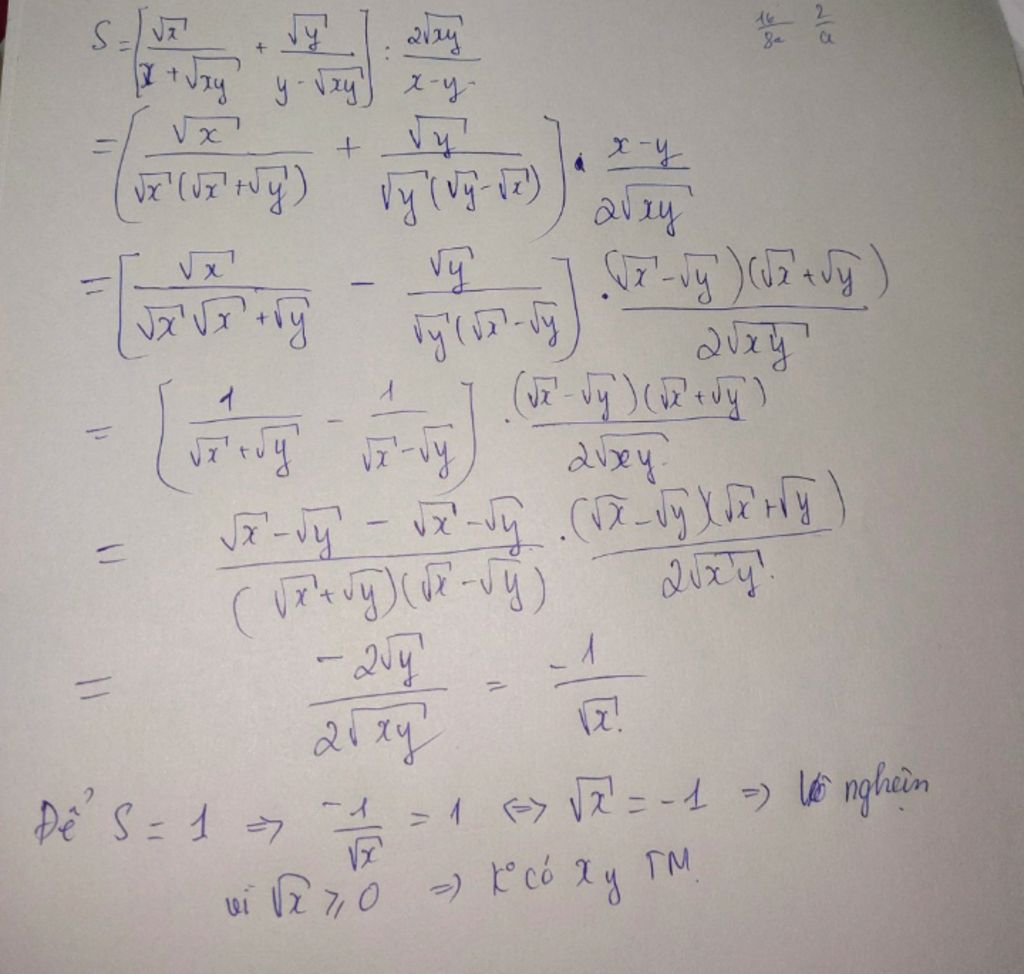 S = [√x / (x + √xy) + √y / (y - √xy)] : 2√xy / (x - y)
= (√x / (√x(√x + √y)) + √y / (√y(√y - √x))) . (x - y) / (2√xy)
= [√x / (√x √x + √y) - √y / (√y(√x - √y))] . (√x - √y)(√x + √y) / (2√xy)
= [1 / (√x + √y) - 1 / (√x - √y)] . (√x - √y)(√x + √y) / (2√xy)
= (√x - √y - √x - √y) / ((√x + √y)(√x - √y)) . (√x - √y)(√x + √y) / (2√xy)
= -2√y / (2√xy) = -1 / √x
Để S = 1 => -1 / √x = 1 <=> √x = -1 => Vô nghiệm
vì √x ≥ 0 => K° có x y TM